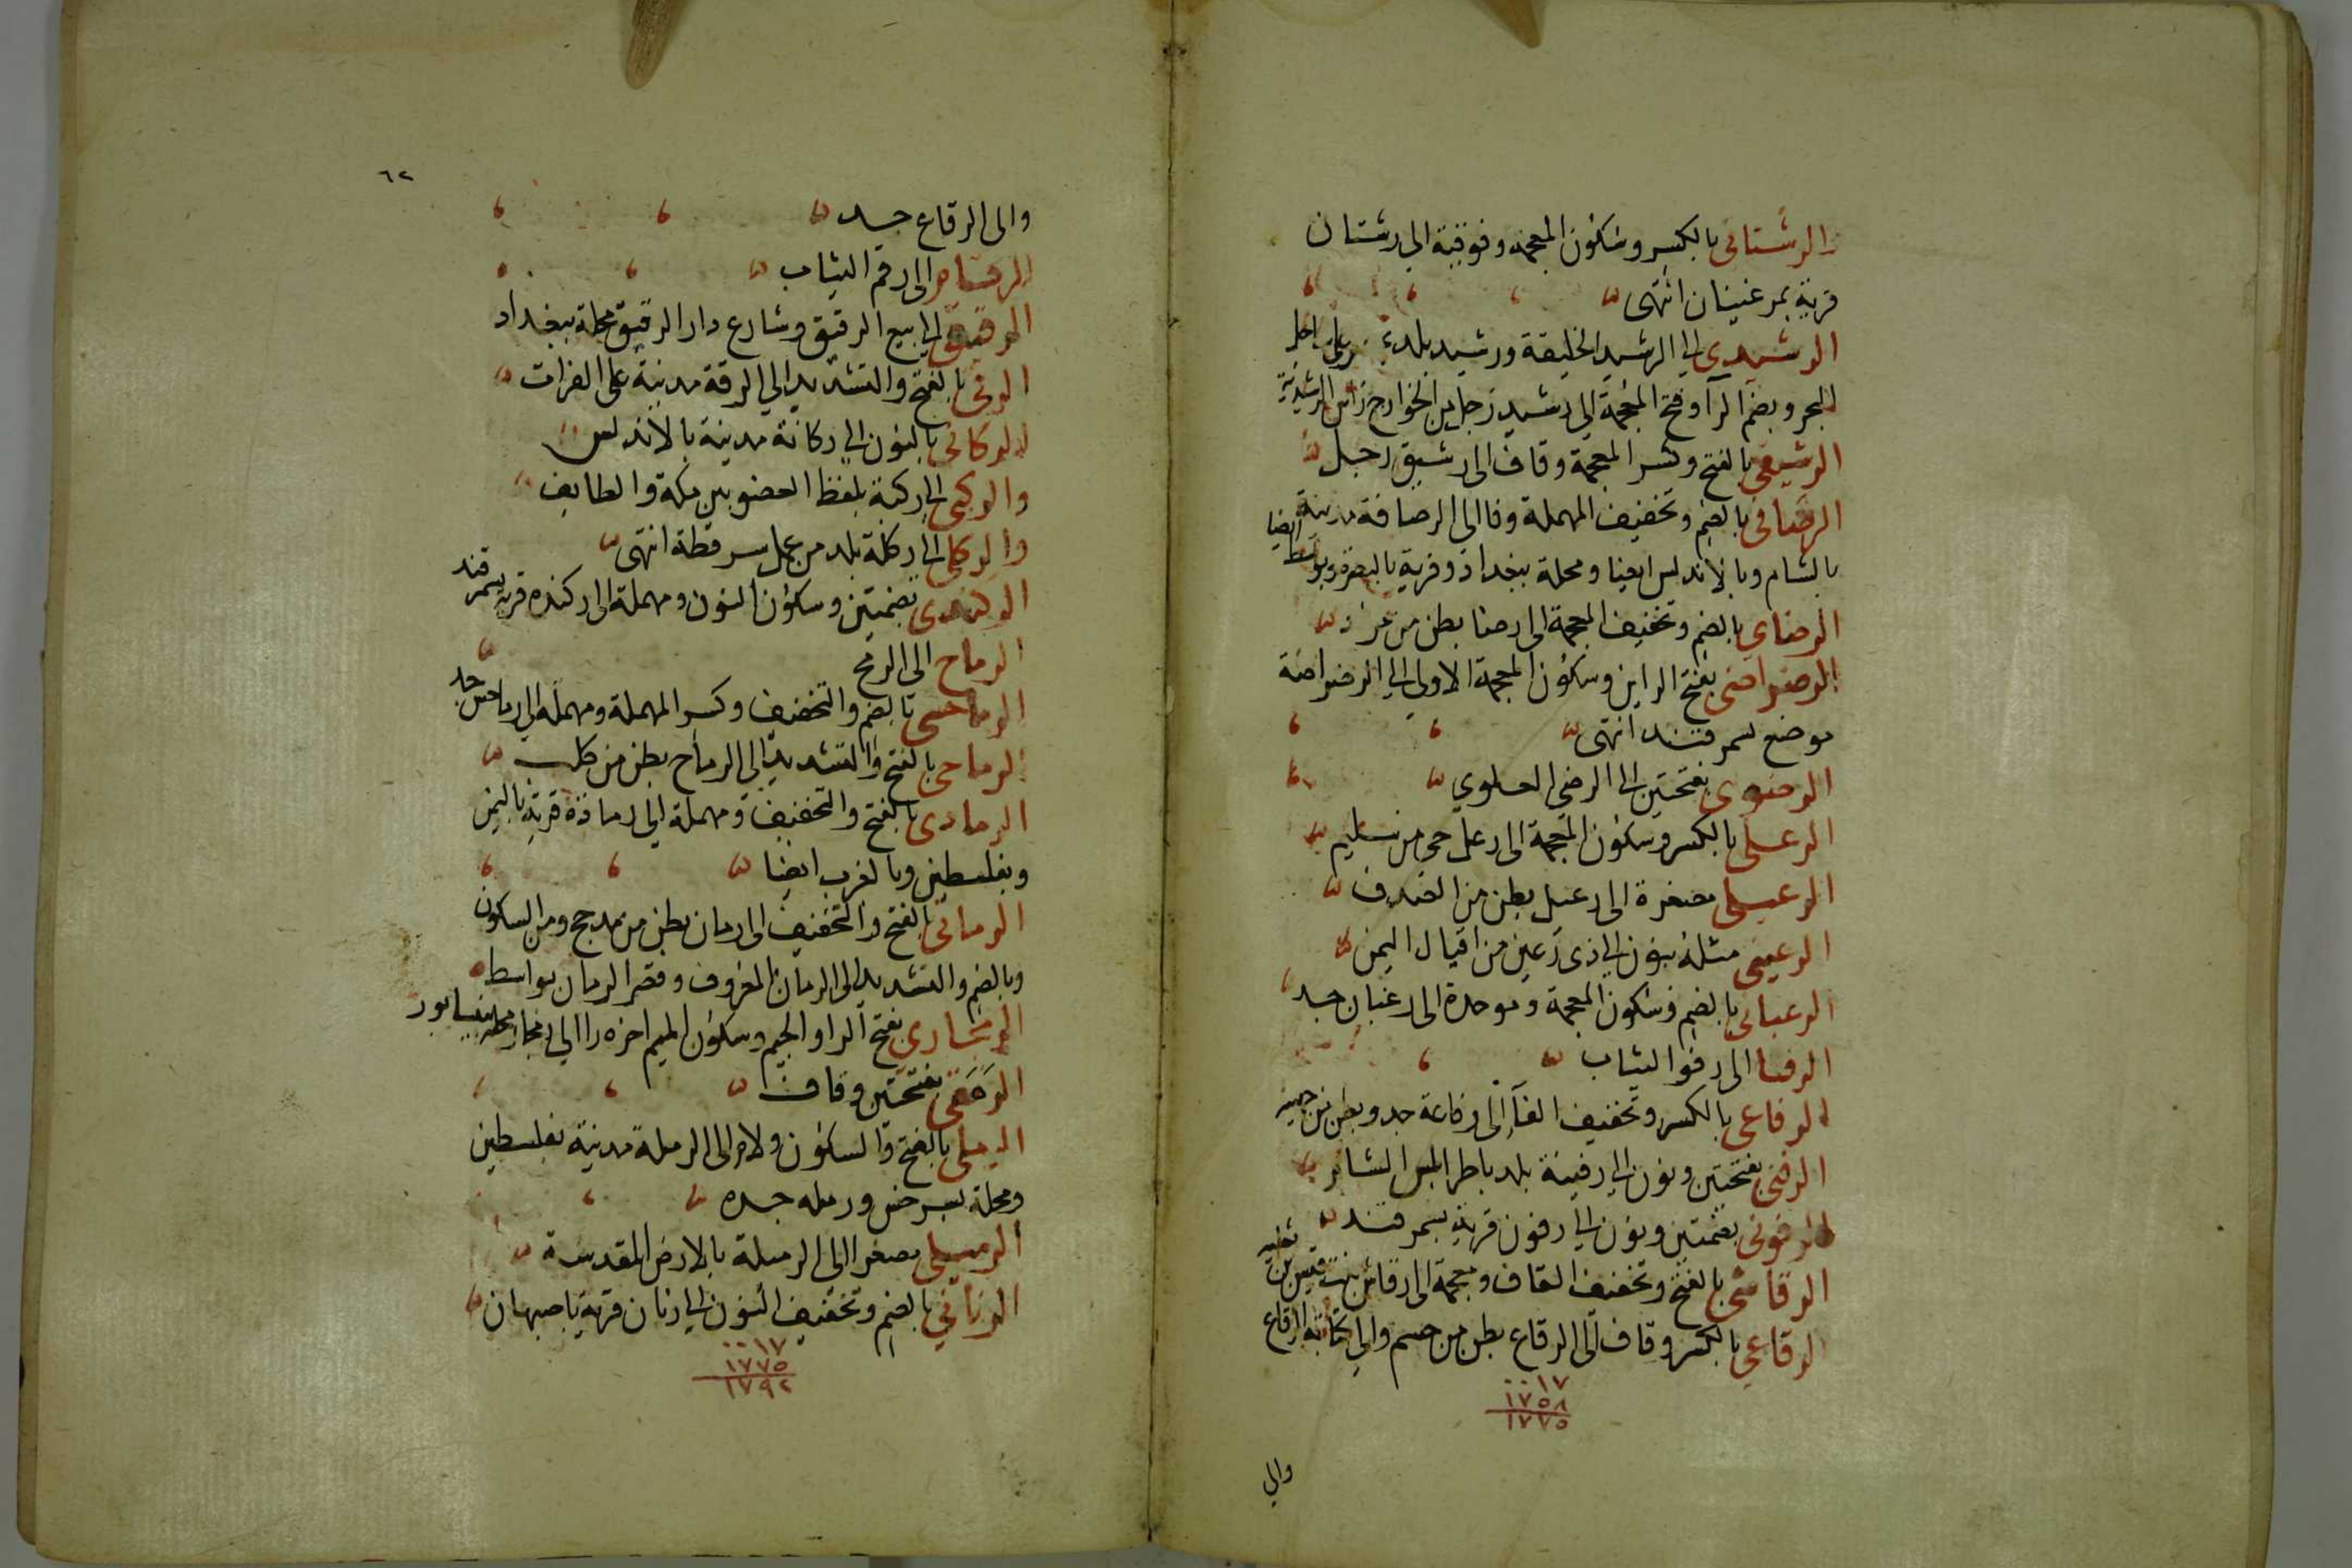 والرشتانى بالكسر وسكون المعجمة وفوقية الى رشتان
قرية بمرغينان انتهى
الرشيدى الى الرشيد الخليفة ورشيد بلدة على ساحل
البحر وبضم الرآ وفتح المعجمة الى رشيد رجل من الخوارج رأس الرشيدية
الرشيقى بالفتح وكسر المعجمة وقاف الى رشيق رجل
الرصافى بالضم وتخفيف المهملة وفا الى الرصافة مدينة
بالشام وبالاندلس ايضا ومحلة ببغداد وقرية بالبصرة وبواسط ايضا
الرضاى بالضم وتخفيف المعجمة الى رضا بطن من مراد
الرضراضى بفتح الراين وسكون المعجمة الاولى الى الرضراضة
موضع بسمرقند انتهى
الرضوى بفتحتين الى الرضى العلوي
الرعلى بالكسر وسكون المعجمة الى رعل حى من سليم
الرعيلى مصغرة الى رعيل بطن من الصدف
الرعينى مثله بنون الى ذى رعين من اقيال اليمن
الرغبانى بالضم وسكون المعجمة وموحدة الى رغبان جد
الرفا الى رفو الثياب
الرفاعى بالكسر وتخفيف الفآ الى رفاعة جد وبطن من جهينة
الرفنى بفتحتين ونون الى رفينة بلد باطرابلس الشام
الرفونى بضمتين ونون الى رفون قرية بسمرقند
الرقاشى بالفتح وتخفيف القاف ومعجمة الى رقاش بنت قيس بن ثعلبه
الرقاعي بالكسر وقاف الى الرقاع بطن من جسم والى كتابة الرقاع
١٧
١٧٥٨
١٧٧٥
والى
٦٢
والى الرقاع جد
الرقام الى رقم الثياب
الرقيقى الى بيع الرقيق وشارع دار الرقيق محلة ببغداد
الرقى بالفتح والتشديد الى الرقة مدينة على الفرات
الركانى بالنون الى ركانة مدينة بالاندلس
والركبى الى ركبة بلفظ العضو بين مكة والطايف
والركلى الى ركلة بلد من عمل سرقطة انتهى
الركندى بضمتين وسكون النون ومهملة الى ركنده قرية بسمرقند
الرماح الى الرمح
الرماحسى بالضم والتخفيف وكسر المهملة ومهملة الى رماحس جد
الرماحى بالفتح والتشديد الى الرماح بطن من كلب
الرمادى بالفتح والتخفيف ومهملة الى رمادة قرية باليمن
وبفلسطين وبالغرب ايضا
الرمانى بالفتح والتخفيف الى رمان بطن من مدحج ومن السكون
وبالضم والتشديد الى الرمان المعروف وقصر الرمان بواسط
الرمجارى بفتح الرا والجيم وسكون الميم اخره را الى رمجار محله بنيسابور
الرمقى بفتحتين وقاف
الرملى بالفتح والسكون ولام الى الرملة مدينة بفلسطين
ومحلة بسرخس ورمله جده
الرميلى مصغرا الى الرميلة بالارض المقدسة
الرنانى بالضم وتخفيف النون الى رنان قرية باصبهان
١٧
١٧٧٥
١٧٩٢